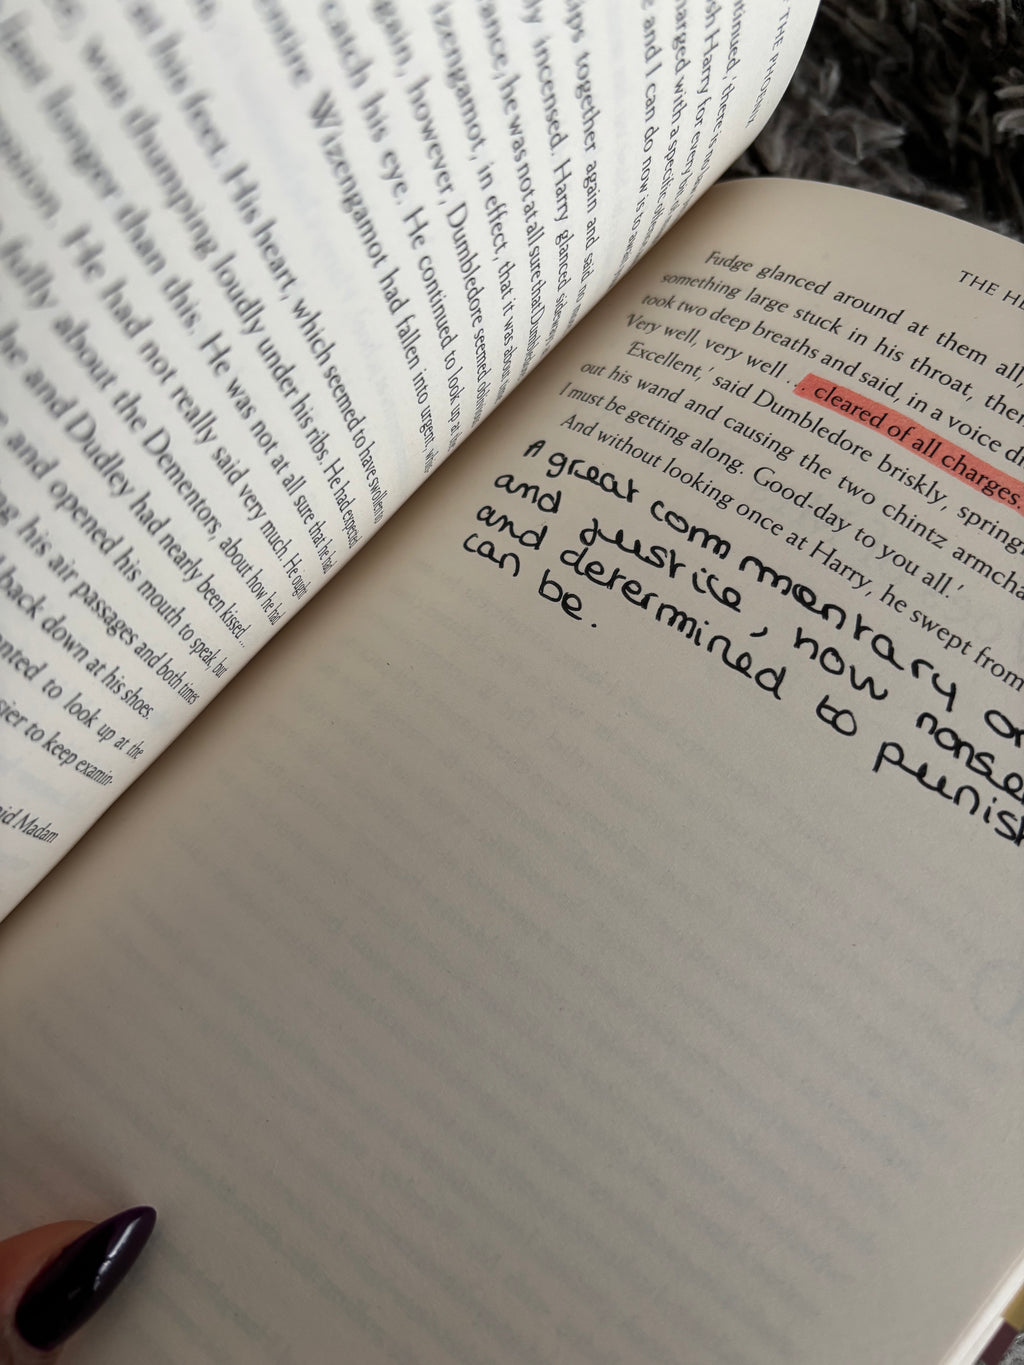 THE PHOENIX
ntinued, 'there is no
sh Harry for every
harged with a specific
e and I can do now is to
ips together again and said no
ly incensed. Harry glanced sideways
ance, he was not at all sure that
izengamot, in effect, that it was about
gain, however, Dumbledore seemed
catch his eye. He continued to look up at the
entire Wizengamot had fallen into urgent,
at his feet. His heart, which seemed to have swollen to
was thumping loudly under his ribs. He had expected
last longer than this. He was not at all sure that he had
He had not really said very much. He ought
fully about the Dementors, about how he had
he and Dudley had nearly been kissed ...
and opened his mouth to speak, but
ng his air passages and both times
back down at his shoes.
nted to look up at the
sier to keep examin-
id Madam
THE HE
Fudge glanced around at them all,
something large stuck in his throat, then
took two deep breaths and said, in a voice di
'Very well, very well ... cleared of all charges.
'Excellent,' said Dumbledore briskly, springi
out his wand and causing the two chintz armcha
I must be getting along. Good-day to you all.'
And without looking once at Harry, he swept from
A great commentary o
and justice, how nonse
and determined to punish
can be.